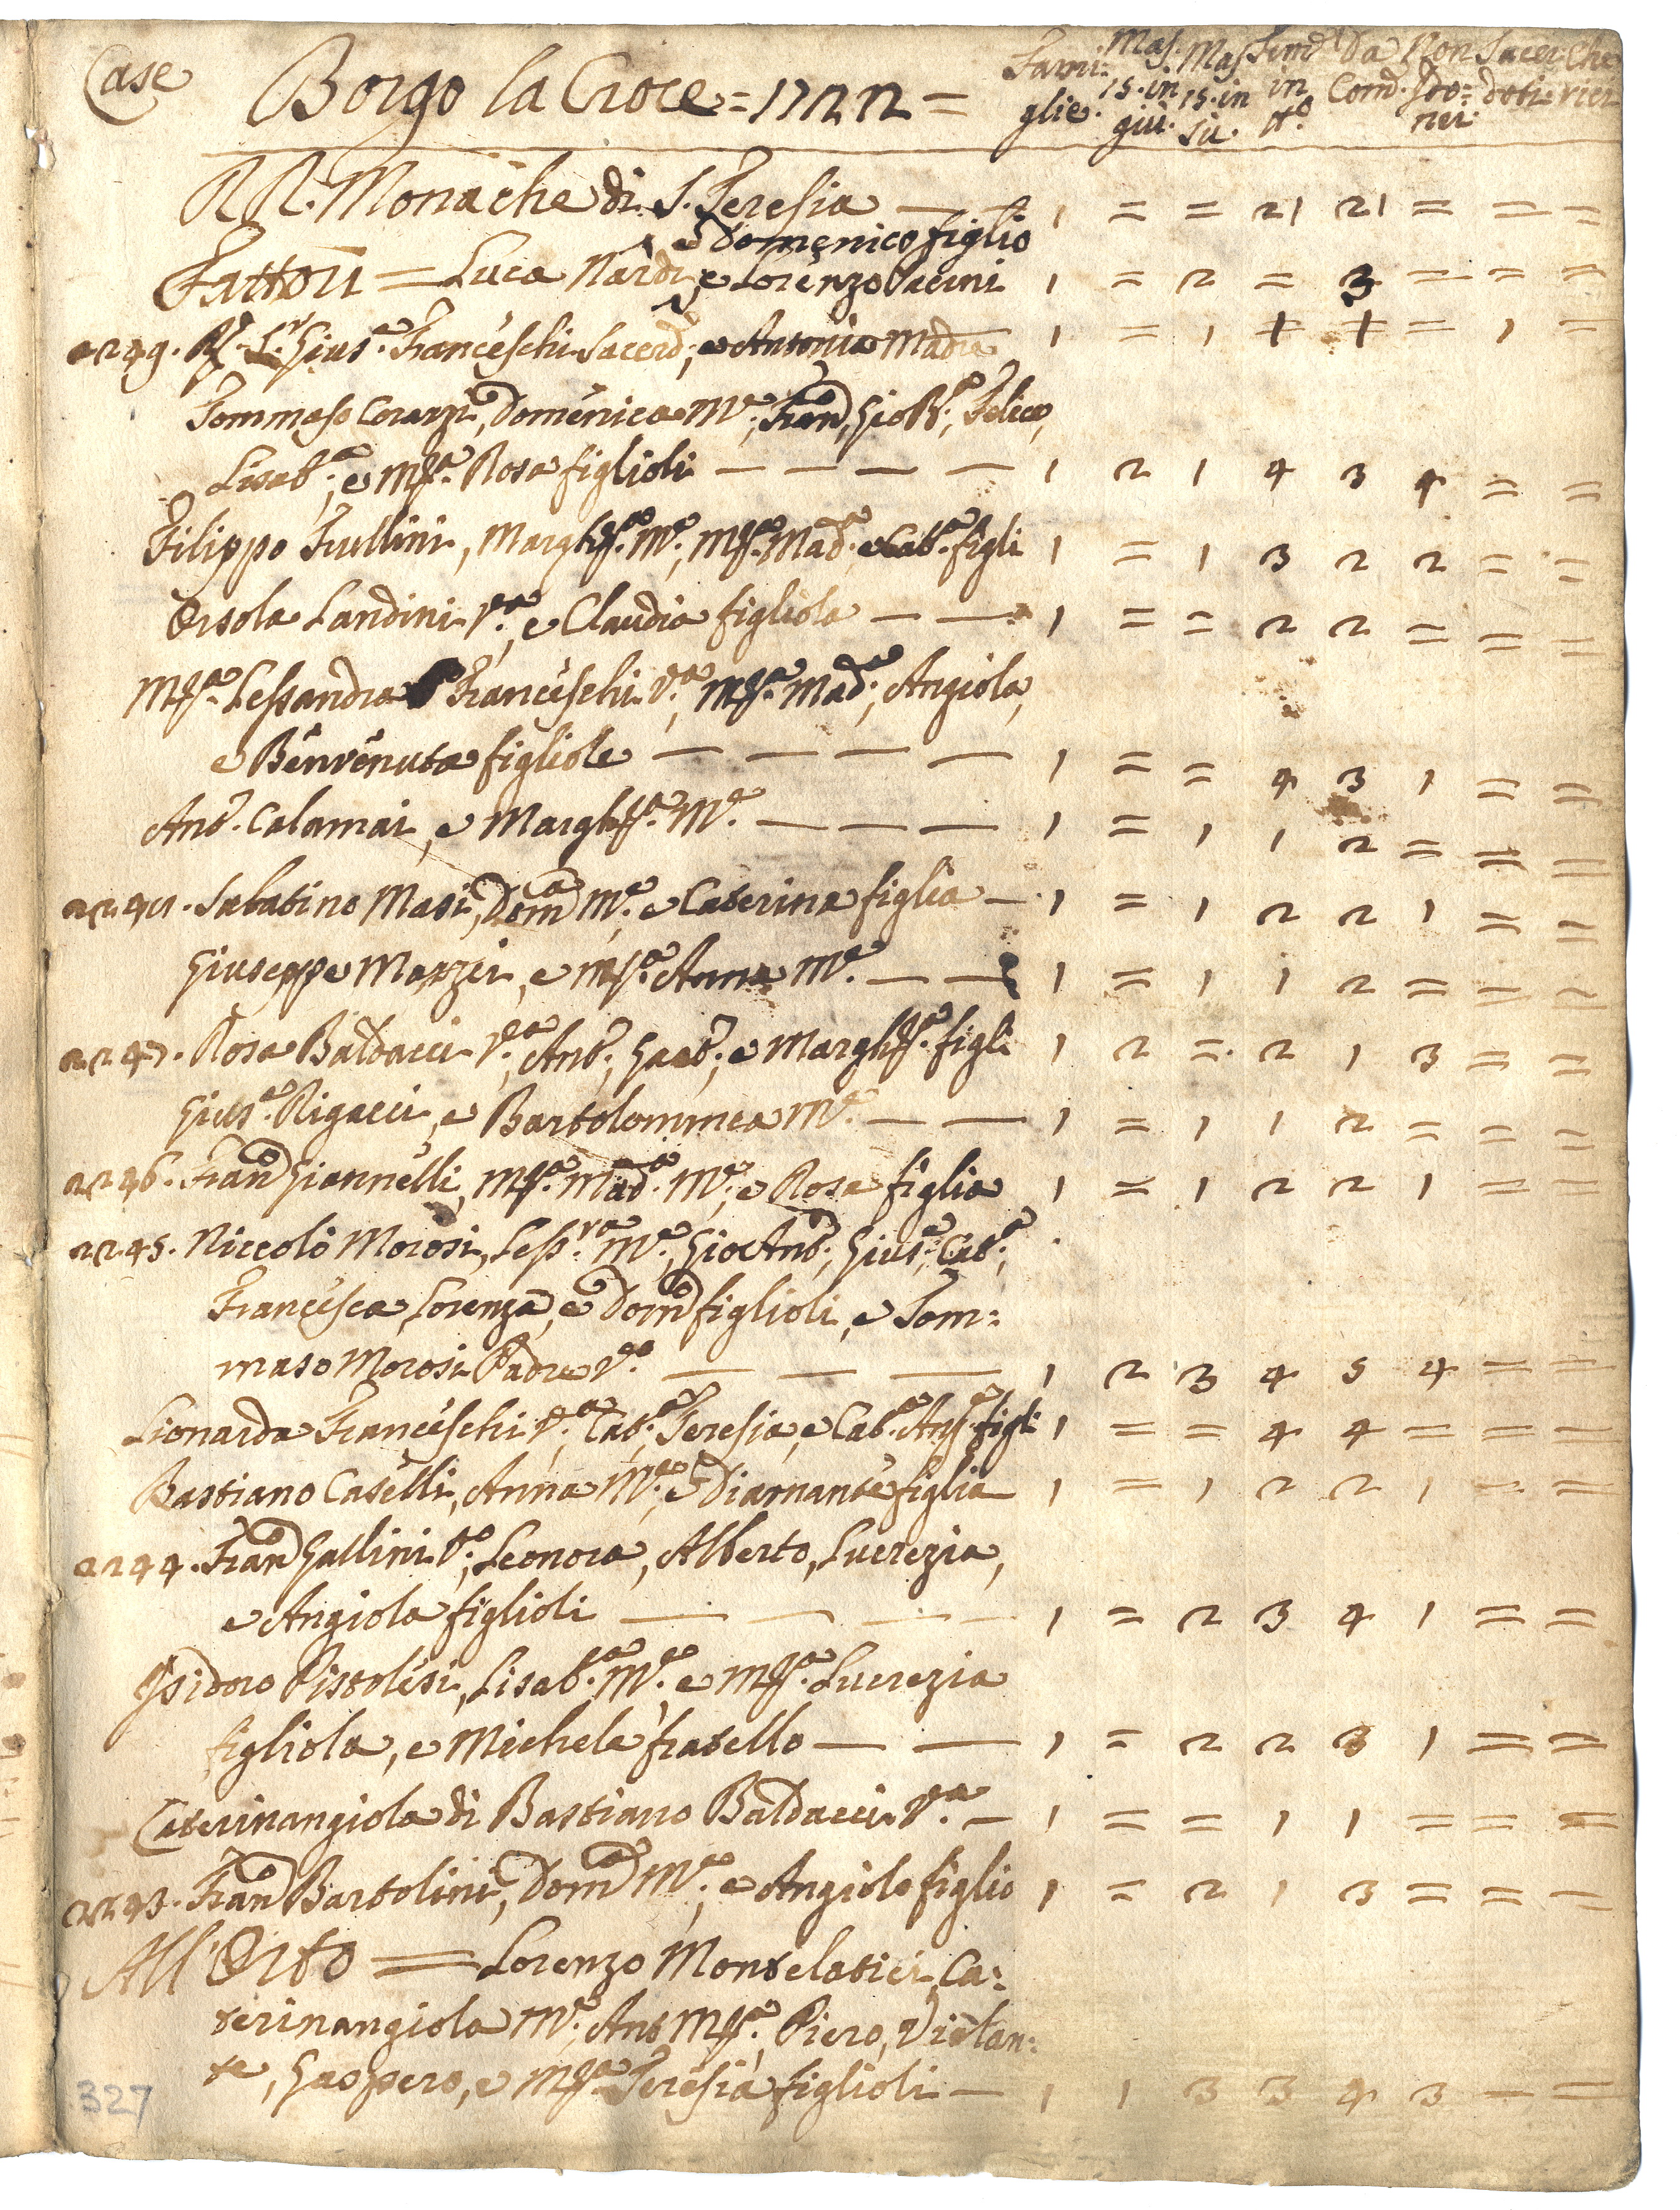 Case Borgo la Croce = 1722 = Fami: glie. Mas. 15. in giù. Mas 15. in su. Fem.e in tt.o Da Com. Non Ido: nei. Sacer doti. Che rici
RR. Monache di S. Teresia — — 1 = = 21 21 = = =
e Domenico figlio
Fattori = Luca Nardi, e Lorenzo Pacini 1 = 2 = 3 = = =
2249. R. S.r Gius.e Franceschi Sacerd; e Antonia Madre 1 = 1 + + = 1 =
Tommaso Corazzi, Domenica M.e; Fran.o, Gio B.a; Felice,
Lisab.a; e M.a Rosa figlioli — — — — 1 2 1 4 3 4 = =
Filippo Frullini, Margh.a M.e; M.a Mad.a e Cat.a figli 1 = 1 3 2 2 = =
Orsola Landini V.a, e Claudia figliola — — 1 = = 2 2 = = =
M.a Lessandra Franceschi V.a, M.a Mad.a; Angiola,
e Benvenuta figliole — — — — 1 = = 4 3 1 = =
Ant. Calamai, e Margh.a M.e — — — 1 = 1 1 2 = = =
2248. Sabatino Masi, Dom.a M.e; e Caterina figlia — 1 = 1 2 2 1 = =
Giuseppe Mazzei, e M.a Anna M.e — — 1 = 1 1 2 = = =
2247. Rosa Baldacci V.a; Ant.; Gaet.; e Margh.a figli 1 2 = 2 1 3 = =
Gius.e Rigacci, e Bartolommea M.e — — 1 = 1 1 2 = = =
2246. Fran.o Giannelli, M.a Mad.a M.e; e Rosa figlia 1 = 1 2 2 1 = =
2245. Niccolò Morosi, Less.ra M.e; Gio Ant.; Gius.e; Cat.a;
Francesca, Lorenza, e Dom.o figlioli, e Tom:
maso Morosi Padre V.o — — — 1 2 3 4 5 4 = =
Lionarda Franceschi V.a; Cat.a; Teresia, e Cat.a Ang.a figli 1 = = 4 4 = = =
Bastiano Caselli, Anna M.e; e Diamante figlia 1 = 1 2 2 1 = =
2244. Fran.o Gallini V.o; Leonora, Alberto, Lucrezia,
e Angiola figlioli — — — — 1 = 2 3 4 1 = =
Isidoro Pistolesi, Lisab.a M.e e M.a Lucrezia
figliola, e Michele fratello — — 1 = 2 2 3 1 = =
Caterinangiola di Bastiano Baldacci V.a — 1 = = 1 1 = = =
2243. Fran.o Bartolini, Dom.a M.e; e Angiolo figlio 1 = 2 1 3 = = =
All'Orto = Lorenzo Montelatici, Ca:
terinangiola M.e; Ant M.a; Piero, Violan:
te, Gaspero, e M.a Teresia figlioli — 1 1 3 3 4 3 = =
327